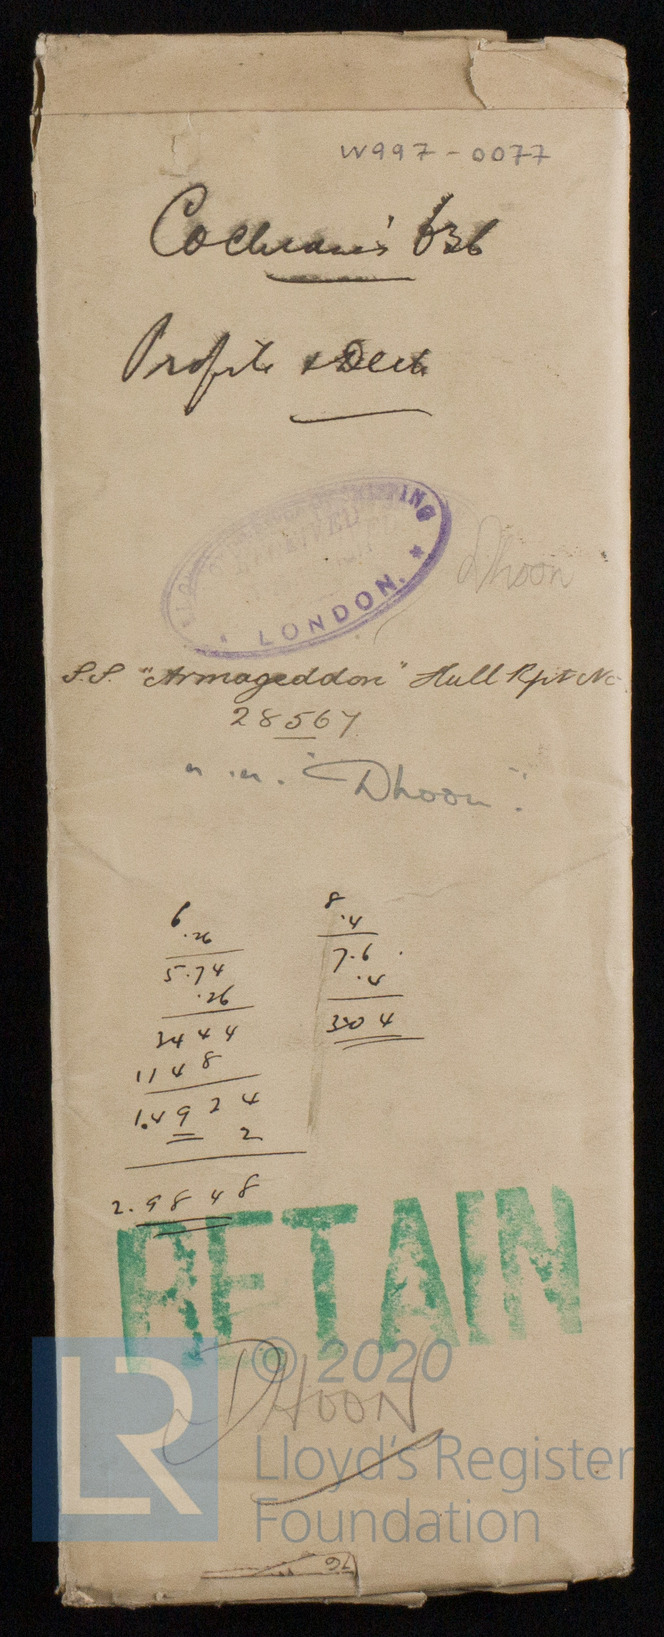 W997-0077
Cochran's 636
Profile & Deck
SHIPPING
RECEIVED
* LONDON. *
Dhoon
S.S. "Armageddon" Hull Rpt No
28567
"Dhoon".
6
.26
5.74
.26
3444
1148
1.4924
2
2.9848
8
.4
7.6
.4
304
RETAIN
© 2020
DHOON
LR
Lloyd's Register
Foundation
76